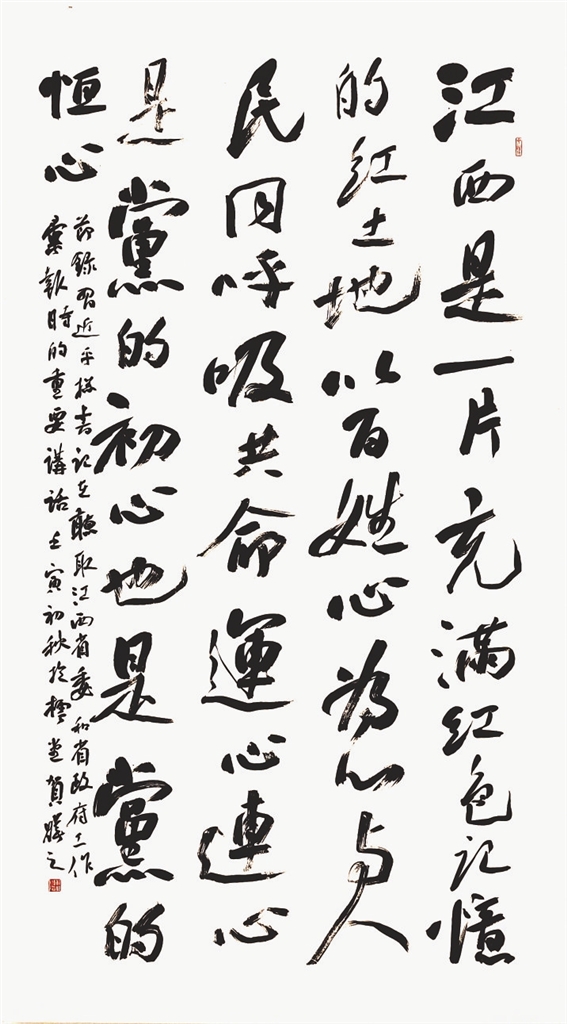 江西是一片充滿红色记憶
的红土地以百姓心为心与人
民同呼吸共命運心連心
是黨的初心也是黨的
恒心
节錄習近平捴书记在聽取江西省委和省政府工作
彙報時的重要講話壬寅初秋於樗堂賀勝之